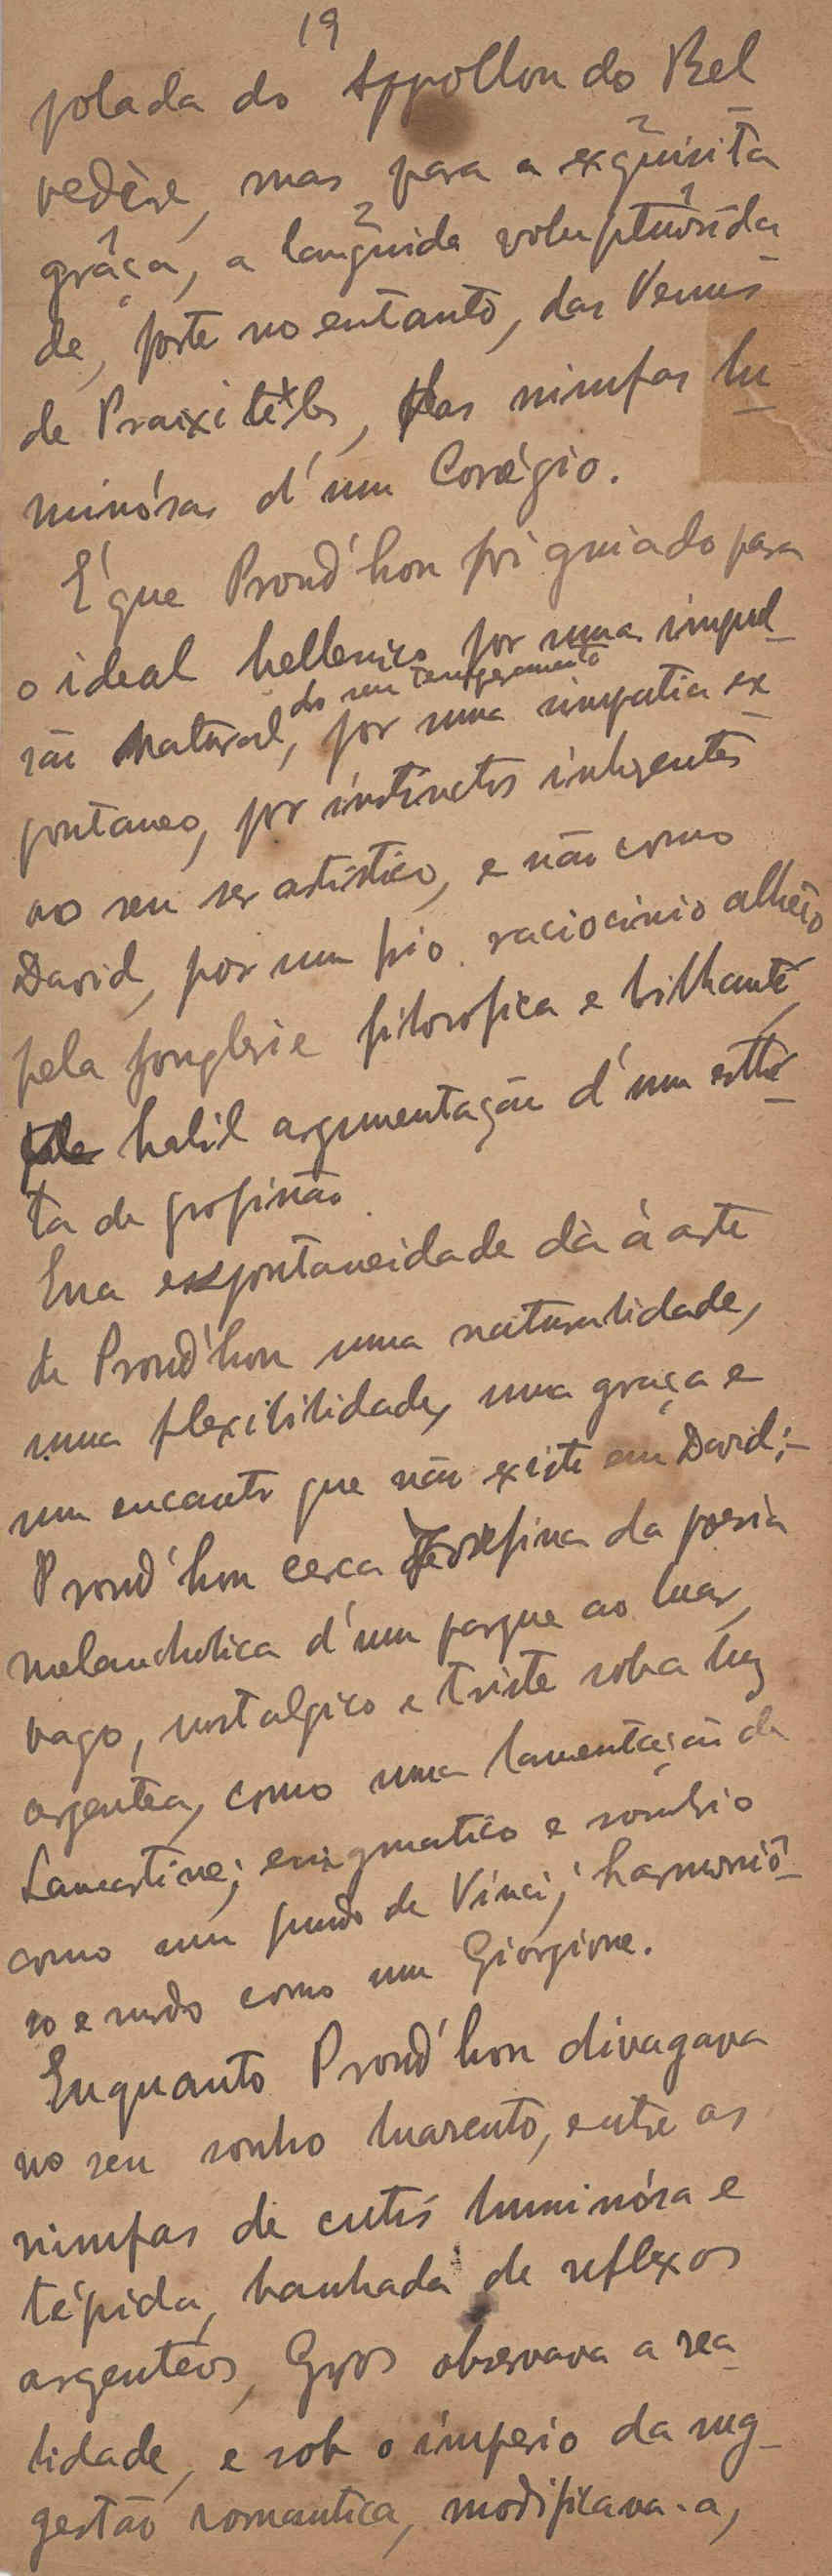 19
polada do Appollon do Bel
vedère, mas para a exquisita
gráça, a languida voluptuosida
de, forte no entanto, das Venus
de Praixiteles, das nimfas lu
minósas d'um Corégio.
É que Proud'hon foi guiado para
o ideal hellenico por uma impul
do seu temperamento
são natural, por uma simpatia ex
pontanea, por instinctos inherentes
ao seu ser artistico, e não como
David, por um frio raciocinio alheio
pela jonglerie filosofica e brilhante,
habil argumentação d'um esthé
ta de profissão.
Essa espontaneidade dà à arte
de Proud'hon uma naturalidade,
uma flexibilidade, uma graça e
um encanto que não existe em David;–
Proud'hon cerca Josefina da poesia
melancholica d'um parque ao luar,
vago, nostalgico e triste sob a luz
argentea, como uma lamentação de
Lamartine; enigmatico e sombrio
como um fundo de Vinci; harmonió
so e surdo como um Giorgione.
Enquanto Proud'hon divagava
no seu sonho luarento, entre as
nimfas de cutis luminósa e
tépida, banhada de reflexos
argenteos, Gros observava a rea
lidade, e sob o império da sug
gestão romantica, modificava-a,